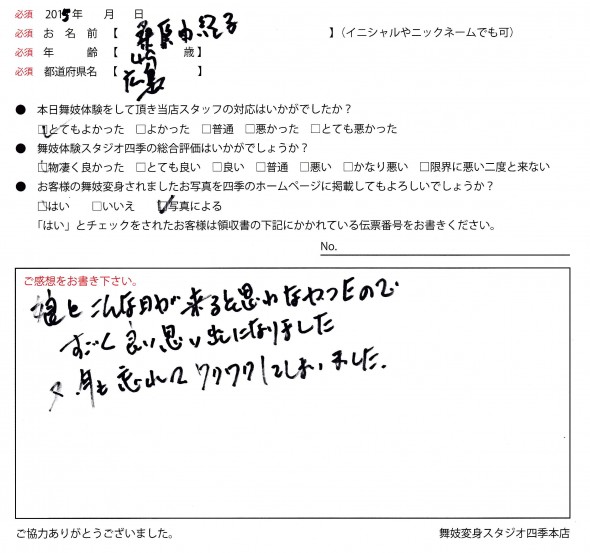 必須 2015年 月 日
必須 お 名 前 【 由紀子 】(イニシャルやニックネームでも可)
必須 年 齢 【 歳】
必須 都道府県名 【 広島 】
● 本日舞妓体験をして頂き当店スタッフの対応はいかがでしたか?
□とてもよかった □よかった □普通 □悪かった □とても悪かった
● 舞妓体験スタジオ四季の総合評価はいかがでしょうか?
□物凄く良かった □とても良い □良い □普通 □悪い □かなり悪い □限界に悪い二度と来ない
● お客様の舞妓変身されましたお写真を四季のホームページに掲載してもよろしいでしょうか?
□はい □いいえ □写真による
「はい」とチェックをされたお客様は領収書の下記にかかれている伝票番号をお書きください。
No.
ご感想をお書き下さい。
娘とこんな日が来ると思わなかったので
すごく良い思い出になりました
年も忘れてワクワクしてしまいました.
ご協力ありがとうございました。
舞妓変身スタジオ四季本店